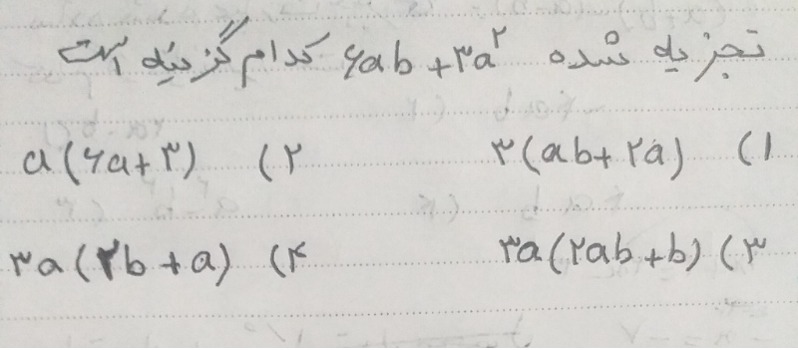 تجزیه شده ۶ab + ۳a² کدام گزینه است
۱) ۳(ab + ۲a) ۲) a(۶a + ۳)
۳) ۳a(۲ab + b) ۴) ۳a(۲b + a)